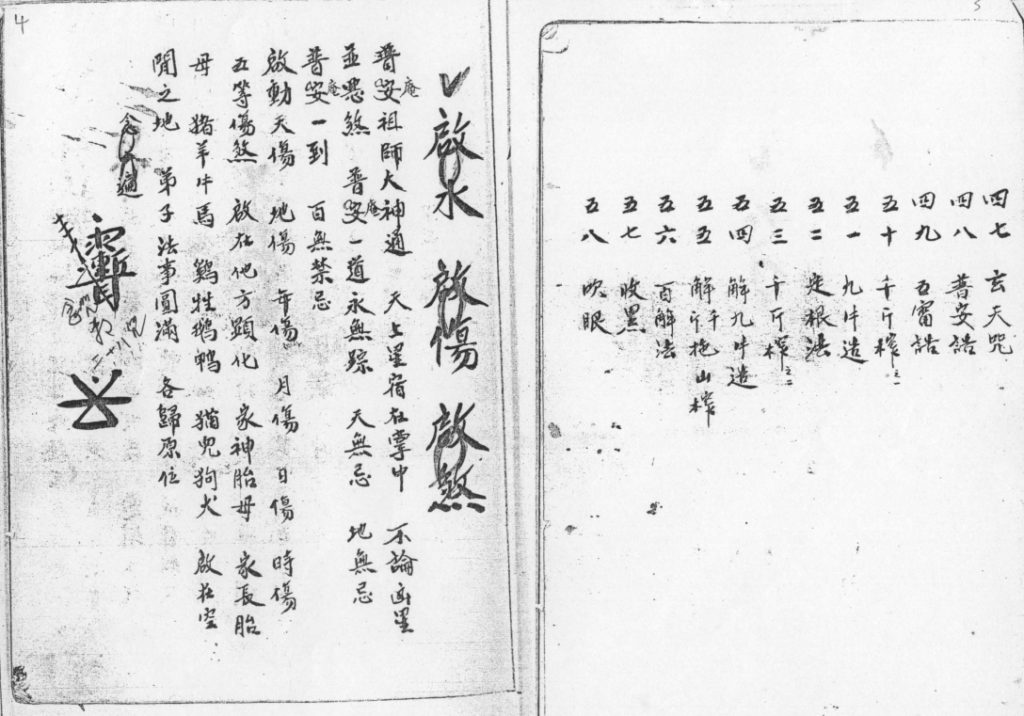 5
四七 玄天咒
四八 普安誥
四九 五雷誥
五十 千斤榨之一
五一 九牛造
五二 定根法
五三 千斤榨之二
五四 解九牛造
五五 解千斤拖山榨
五六 百解法
五七 收黑
五八 吹眼
4
啟水 啟傷 啟煞
普安庵祖師大神通 天上星宿在掌中 不論凶星
並惡煞 普安庵一道永無踪 天無忌 地無忌
普安庵一到 百無禁忌
啟動天傷 地傷 年傷 月傷 日傷 時傷
五等傷煞 啟在他方顯化 家神胎母 家長胎
母 猪羊牛馬 鷄牲鵝鸭 猫兒狗犬 啟在空
間之地 弟子法事圓滿 各歸原位
念 遍